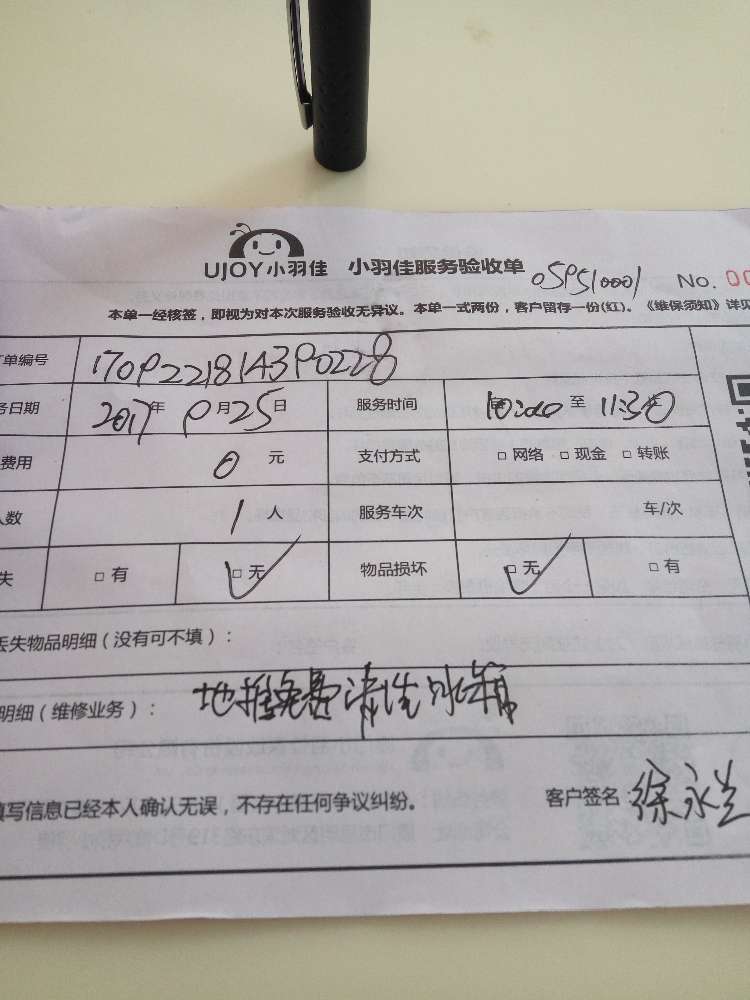 UJOY小羽佳 小羽佳服务验收单 05P510001 No. 00
本单一经核签，即视为对本次服务验收无异议。本单一式两份，客户留存一份(红)。《维保须知》详见
单编号 1709221814390228
务日期 2017年 9月25日 服务时间 10:00 至 11:30
费用 0 元 支付方式 □ 网络 □ 现金 □ 转账
人数 1 服务车次 车/次
失 □ 有 □ 无 物品损坏 □ 无 □ 有
丢失物品明细（没有可不填）：
明细（维修业务）： 地推免费清洗水箱
填写信息已经本人确认无误，不存在任何争议纠纷。 客户签名：徐永兰